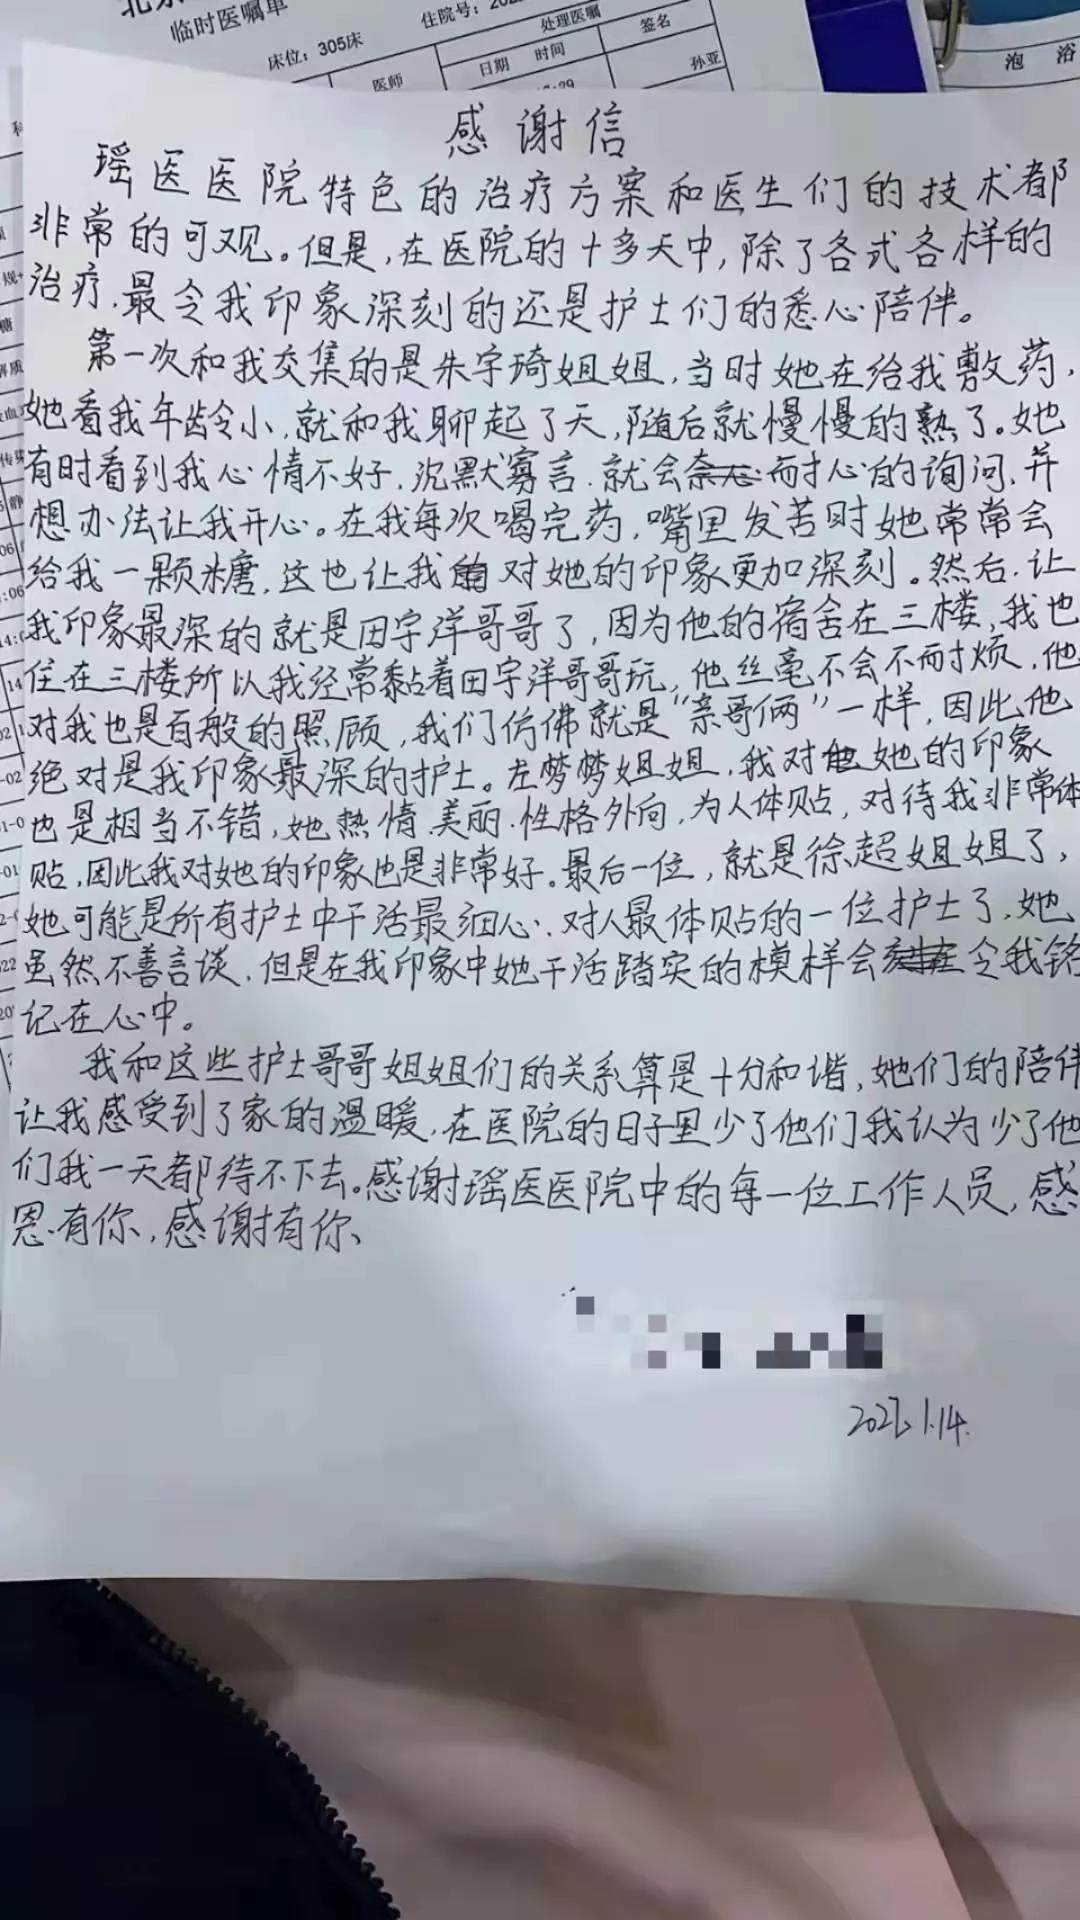 临时医嘱单
住院号：202
床位：305床
处理医嘱
签名
医师
日期
时间
孙亚
泡 浴
感谢信
瑶医医院特色的治疗方案和医生们的技术都
非常的可观。但是，在医院的十多天中，除了各式各样的
治疗，最令我印象深刻的还是护士们的悉心陪伴。
第一次和我交集的是朱宇琦姐姐，当时她在给我敷药，
她看我年龄小，就和我聊起了天，随后就慢慢的熟了。她
有时看到我心情不好，沉默寡言，就会耐心的询问，并
想办法让我开心。在我每次喝完药，嘴里发苦时她常常会
给我一颗糖，这也让我对她的印象更加深刻。然后，让
我印象最深的就是田宇洋哥哥了，因为他的宿舍在三楼，我也
住在三楼所以我经常黏着田宇洋哥哥玩，他丝毫不会不耐烦，他
对我也是百般的照顾，我们仿佛就是“亲哥俩”一样，因此他
绝对是我印象最深的护士。左梦梦姐姐，我对她的印象
也是相当不错，她热情、美丽、性格外向，为人体贴，对待我非常体
贴，因此我对她的印象也是非常好。最后一位，就是徐超姐姐了，
她可能是所有护士中干活最细心、对人最体贴的一位护士了，她
虽然不善言谈，但是在我印象中她干活踏实的模样会令我铭
记在心中。
我和这些护士哥哥姐姐们的关系算是十分和谐，她们的陪伴
让我感受到了家的温暖，在医院的日子里少了他们我认为少了他
们我一天都待不下去。感谢瑶医医院中的每一位工作人员，感
恩有你，感谢有你、